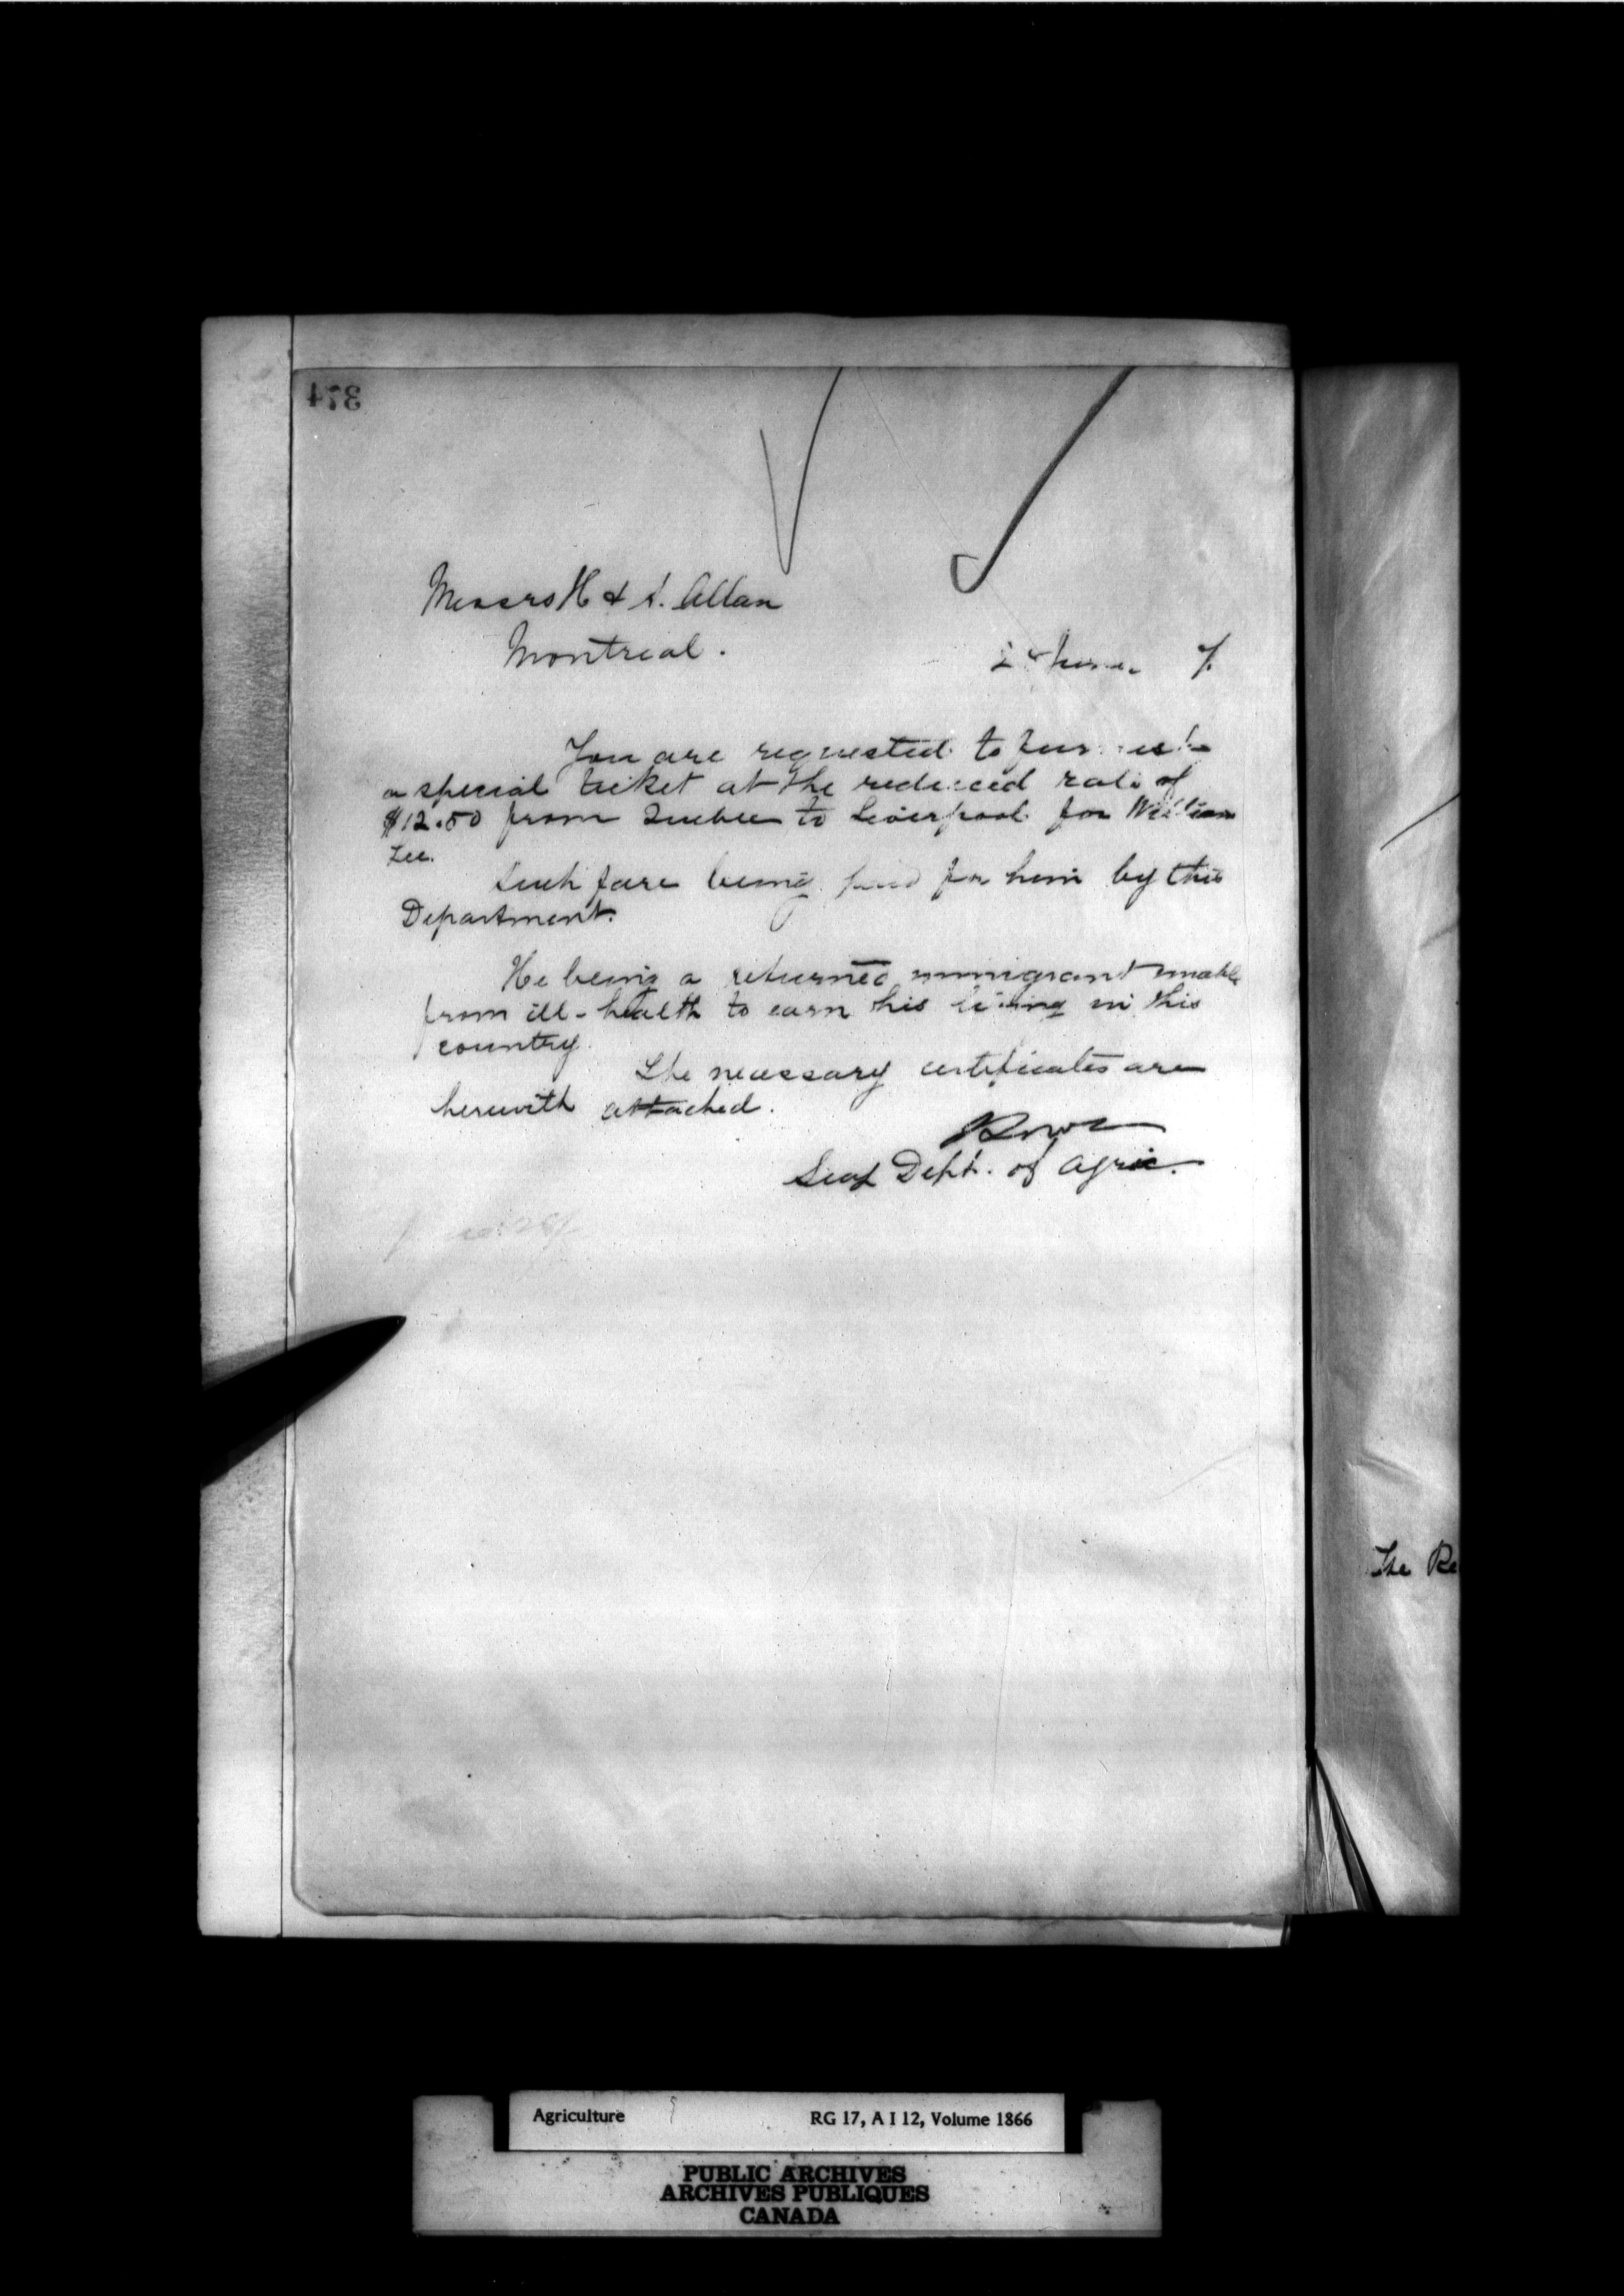 374
Messrs H & A. Allan
Montreal.
7.
You are requested to furnish
a special ticket at the reduced rate of
$12.50 from Quebec to Liverpool for William
Lee.
Such fare being paid for him by this
Department.
He being a returned immigrant unable
from ill-health to earn his living in this
country.
The necessary certificates are
herewith attached.
Secy Dept. of Agric.
The Re
Agriculture RG 17, A I 12, Volume 1866
PUBLIC ARCHIVES
ARCHIVES PUBLIQUES
CANADA